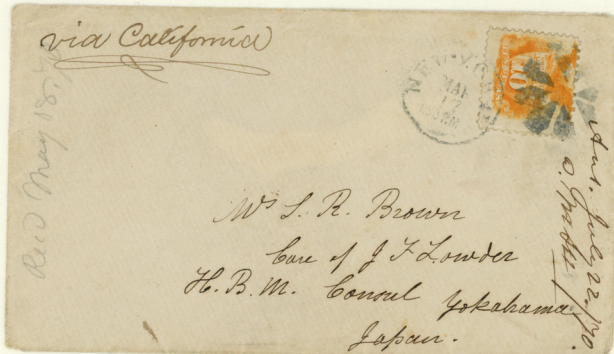 via California
NEW YORK
MAR
10
Recd May 18. 70
Mrs S. R. Brown
Care of J F Lowder
H. B. M. Consul Yokahama
Japan.
Ans. July 22. /70.